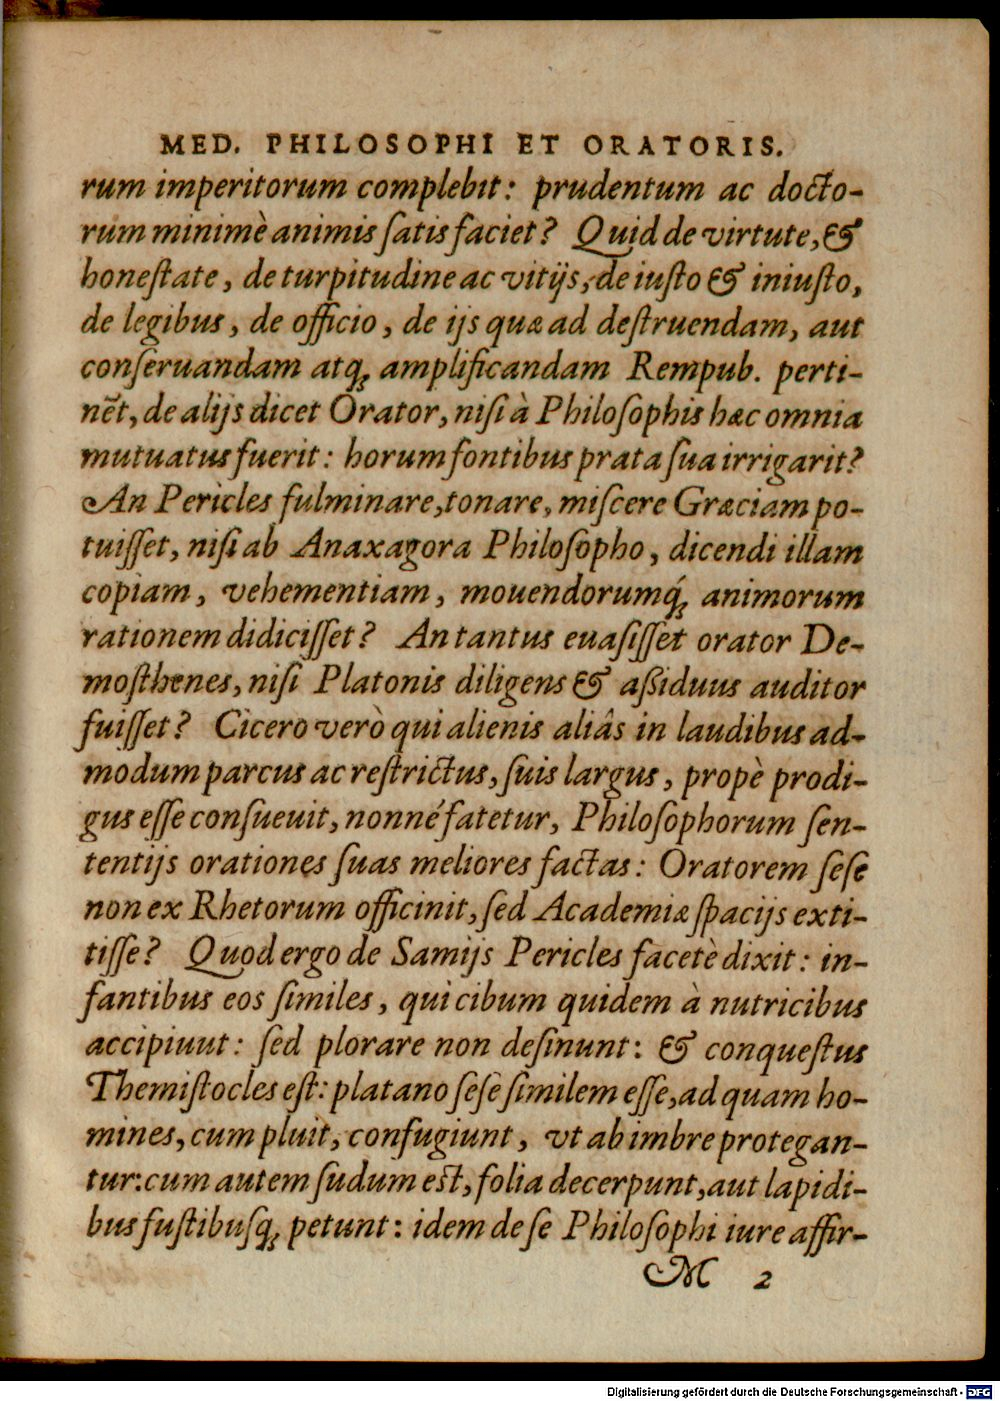 MED. PHILOSOPHI ET ORATORIS.
rum imperitorum complebit: prudentum ac docto-
rum minimè animis ſatis faciet? Quid de virtute, &
honeſtate, de turpitudine ac vitijs, de iuſto & iniuſto,
de legibus, de officio, de ijs quæ ad deſtruendam, aut
conſeruandam atq; amplificandam Rempub. perti-
nẽt, de alijs dicet Orator, niſi à Philoſophis hæc omnia
mutuatus fuerit: horum fontibus prata ſua irrigarit?
An Pericles fulminare, tonare, miſcere Græciam po-
tuiſſet, niſi ab Anaxagora Philoſopho, dicendi illam
copiam, vehementiam, mouendorumq́; animorum
rationem didiciſſet? An tantus euaſiſſet orator De-
moſthenes, niſi Platonis diligens & aßiduus auditor
fuiſſet? Cicero verò qui alienis aliâs in laudibus ad-
modum parcus ac reſtrictus, ſuis largus, propè prodi-
gus eſſe conſueuit, nonné fatetur, Philoſophorum ſen-
tentijs orationes ſuas meliores factas: Oratorem ſeſe
non ex Rhetorum officinit, ſed Academiæ ſpacijs exti-
tiſſe? Quod ergo de Samijs Pericles facetè dixit: in-
fantibus eos ſimiles, qui cibum quidem à nutricibus
accipiuut: ſed plorare non deſinunt: & conqueſtus
Themiſtocles eſt: platano ſeſe ſimilem eſſe, ad quam ho-
mines, cum pluit, confugiunt, vt ab imbre protegan-
tur: cum autem ſudum eſt, folia decerpunt, aut lapidi-
bus fuſtibuſq; petunt: idem de ſe Philoſophi iure affir-
M 2
Digitalisierung gefördert durch die Deutsche Forschungsgemeinschaft - DFG